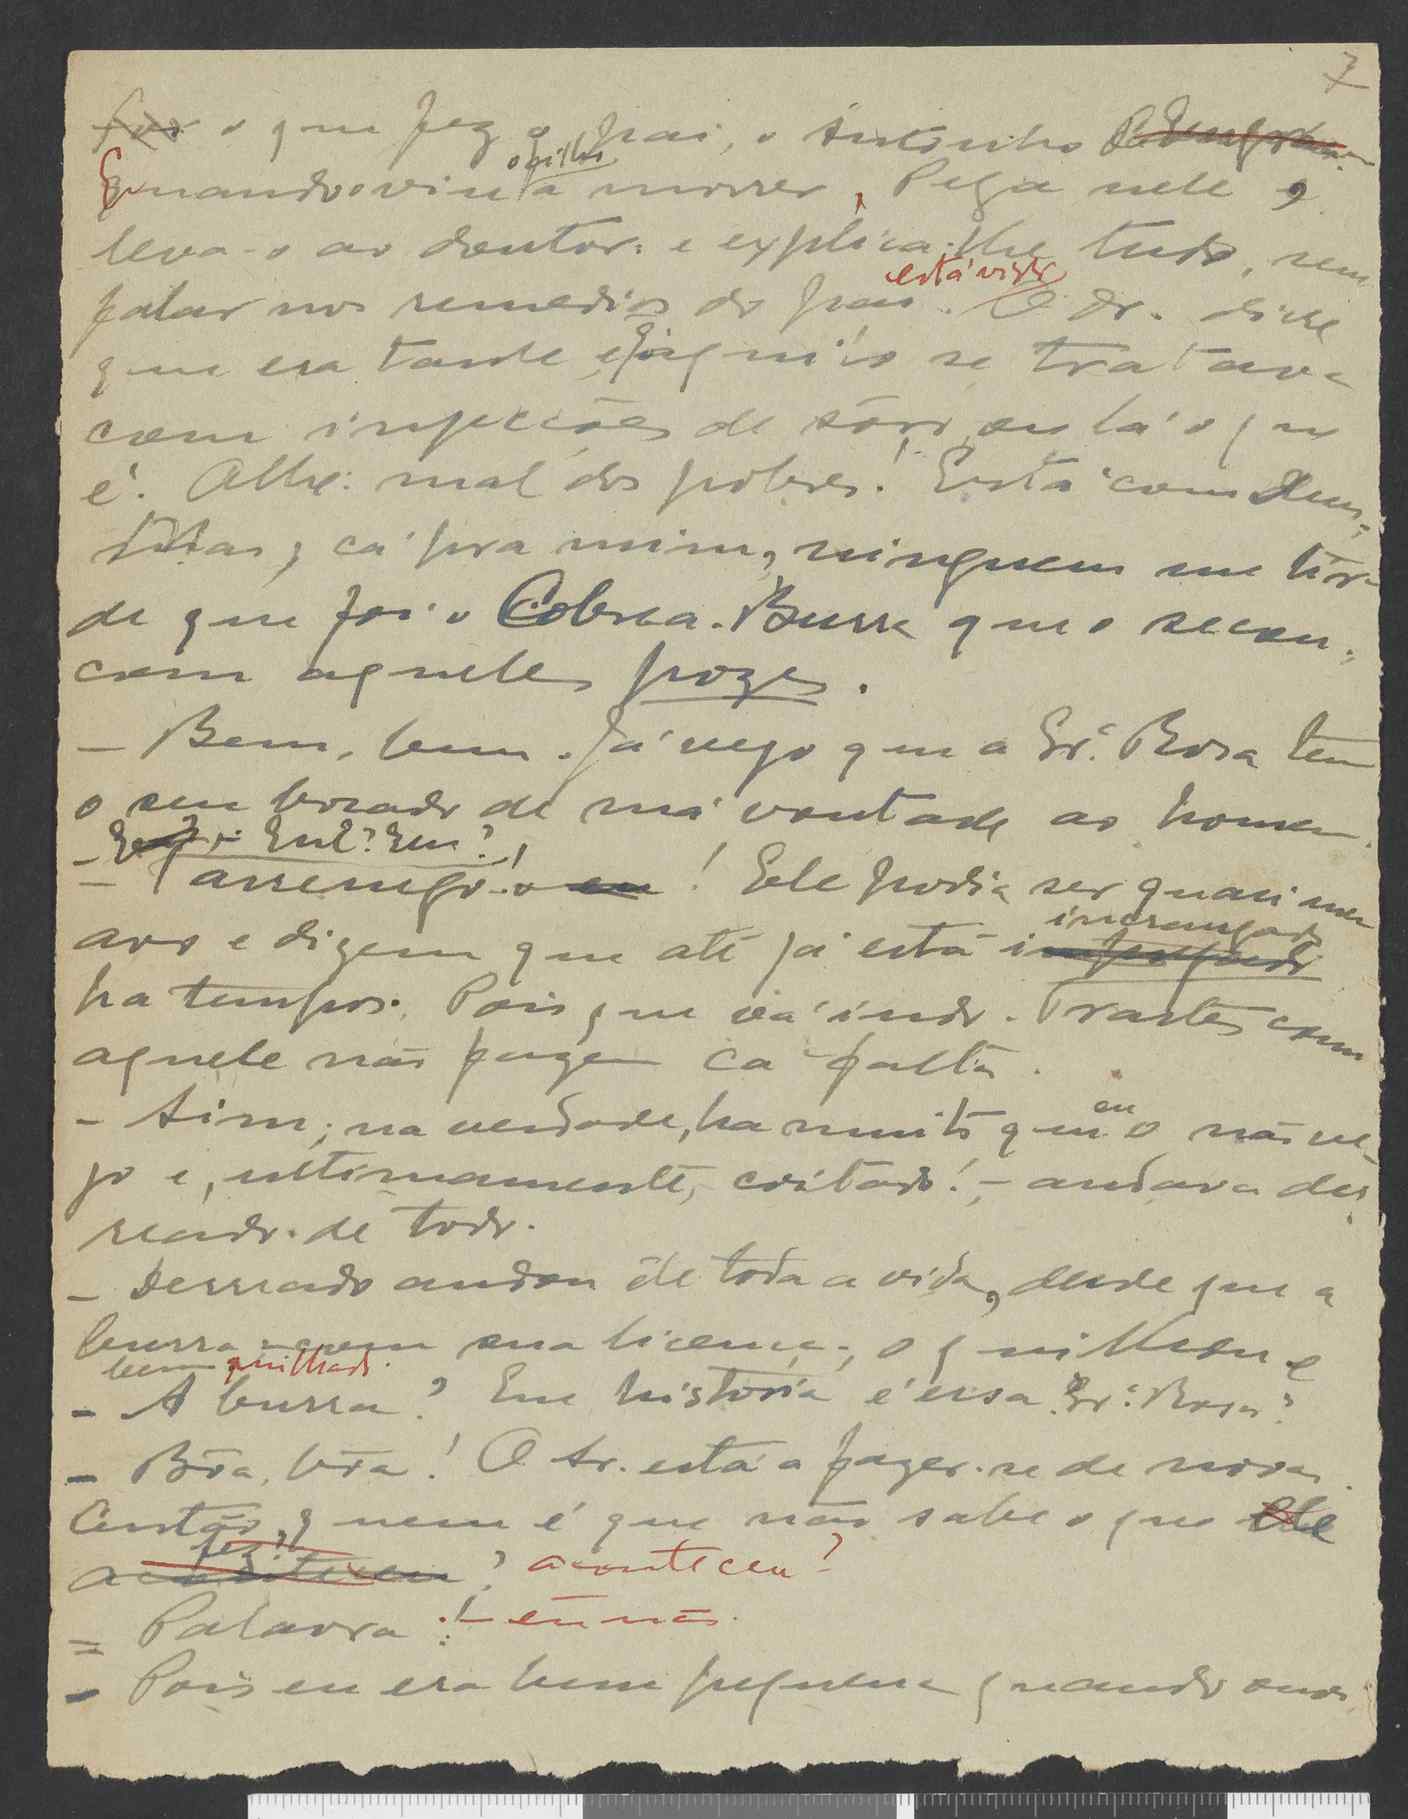 7
o que fez o pai, o Antonho
Quando o viu o filho a morrer, Pega nele e
leva-o ao doutor: e explica-lhe tudo, sem
falar nos remedios do pai. está visto O dr. disse
que era tarde e que aquilo se tratava
com injecções de sôro ou lá o que
é. Olhe: mal dos pobres! Está com Deus;
mas, cá pra mim, ninguem me tira
de que foi o Cobrea-Burra que o secou,
com aqueles pozes.
— Bem, bem. Já vejo que a Sr.ª Rosa tem
o seu bocado de má vontade ao homem.
— Eu? Eu?!
— T'arrenego! Ele podia ser quasi meu
avo e dizem que até já está incrangado
ha tempos. Pois que vá indo. Trastes como
aquele não fazem cá falta.
— Sim; na verdade, ha muito que eu o não ve-
jo e, ultimamente, coitado! — andava der-
reado de todo.
— Derreado andou ele toda a vida, desde que a
burra - com sua licença -, o quilhou e
bem quilhado.
— A burra? Que historia é essa Sr.ª Rosa?
— Bôa, bôa! O Sr. está a fazer-se de novas.
Então, quem é que não sabe o que ele
fez? aconteceu?
— Palavra! — eu não.
— Pois eu era bem pequena quando ouvi